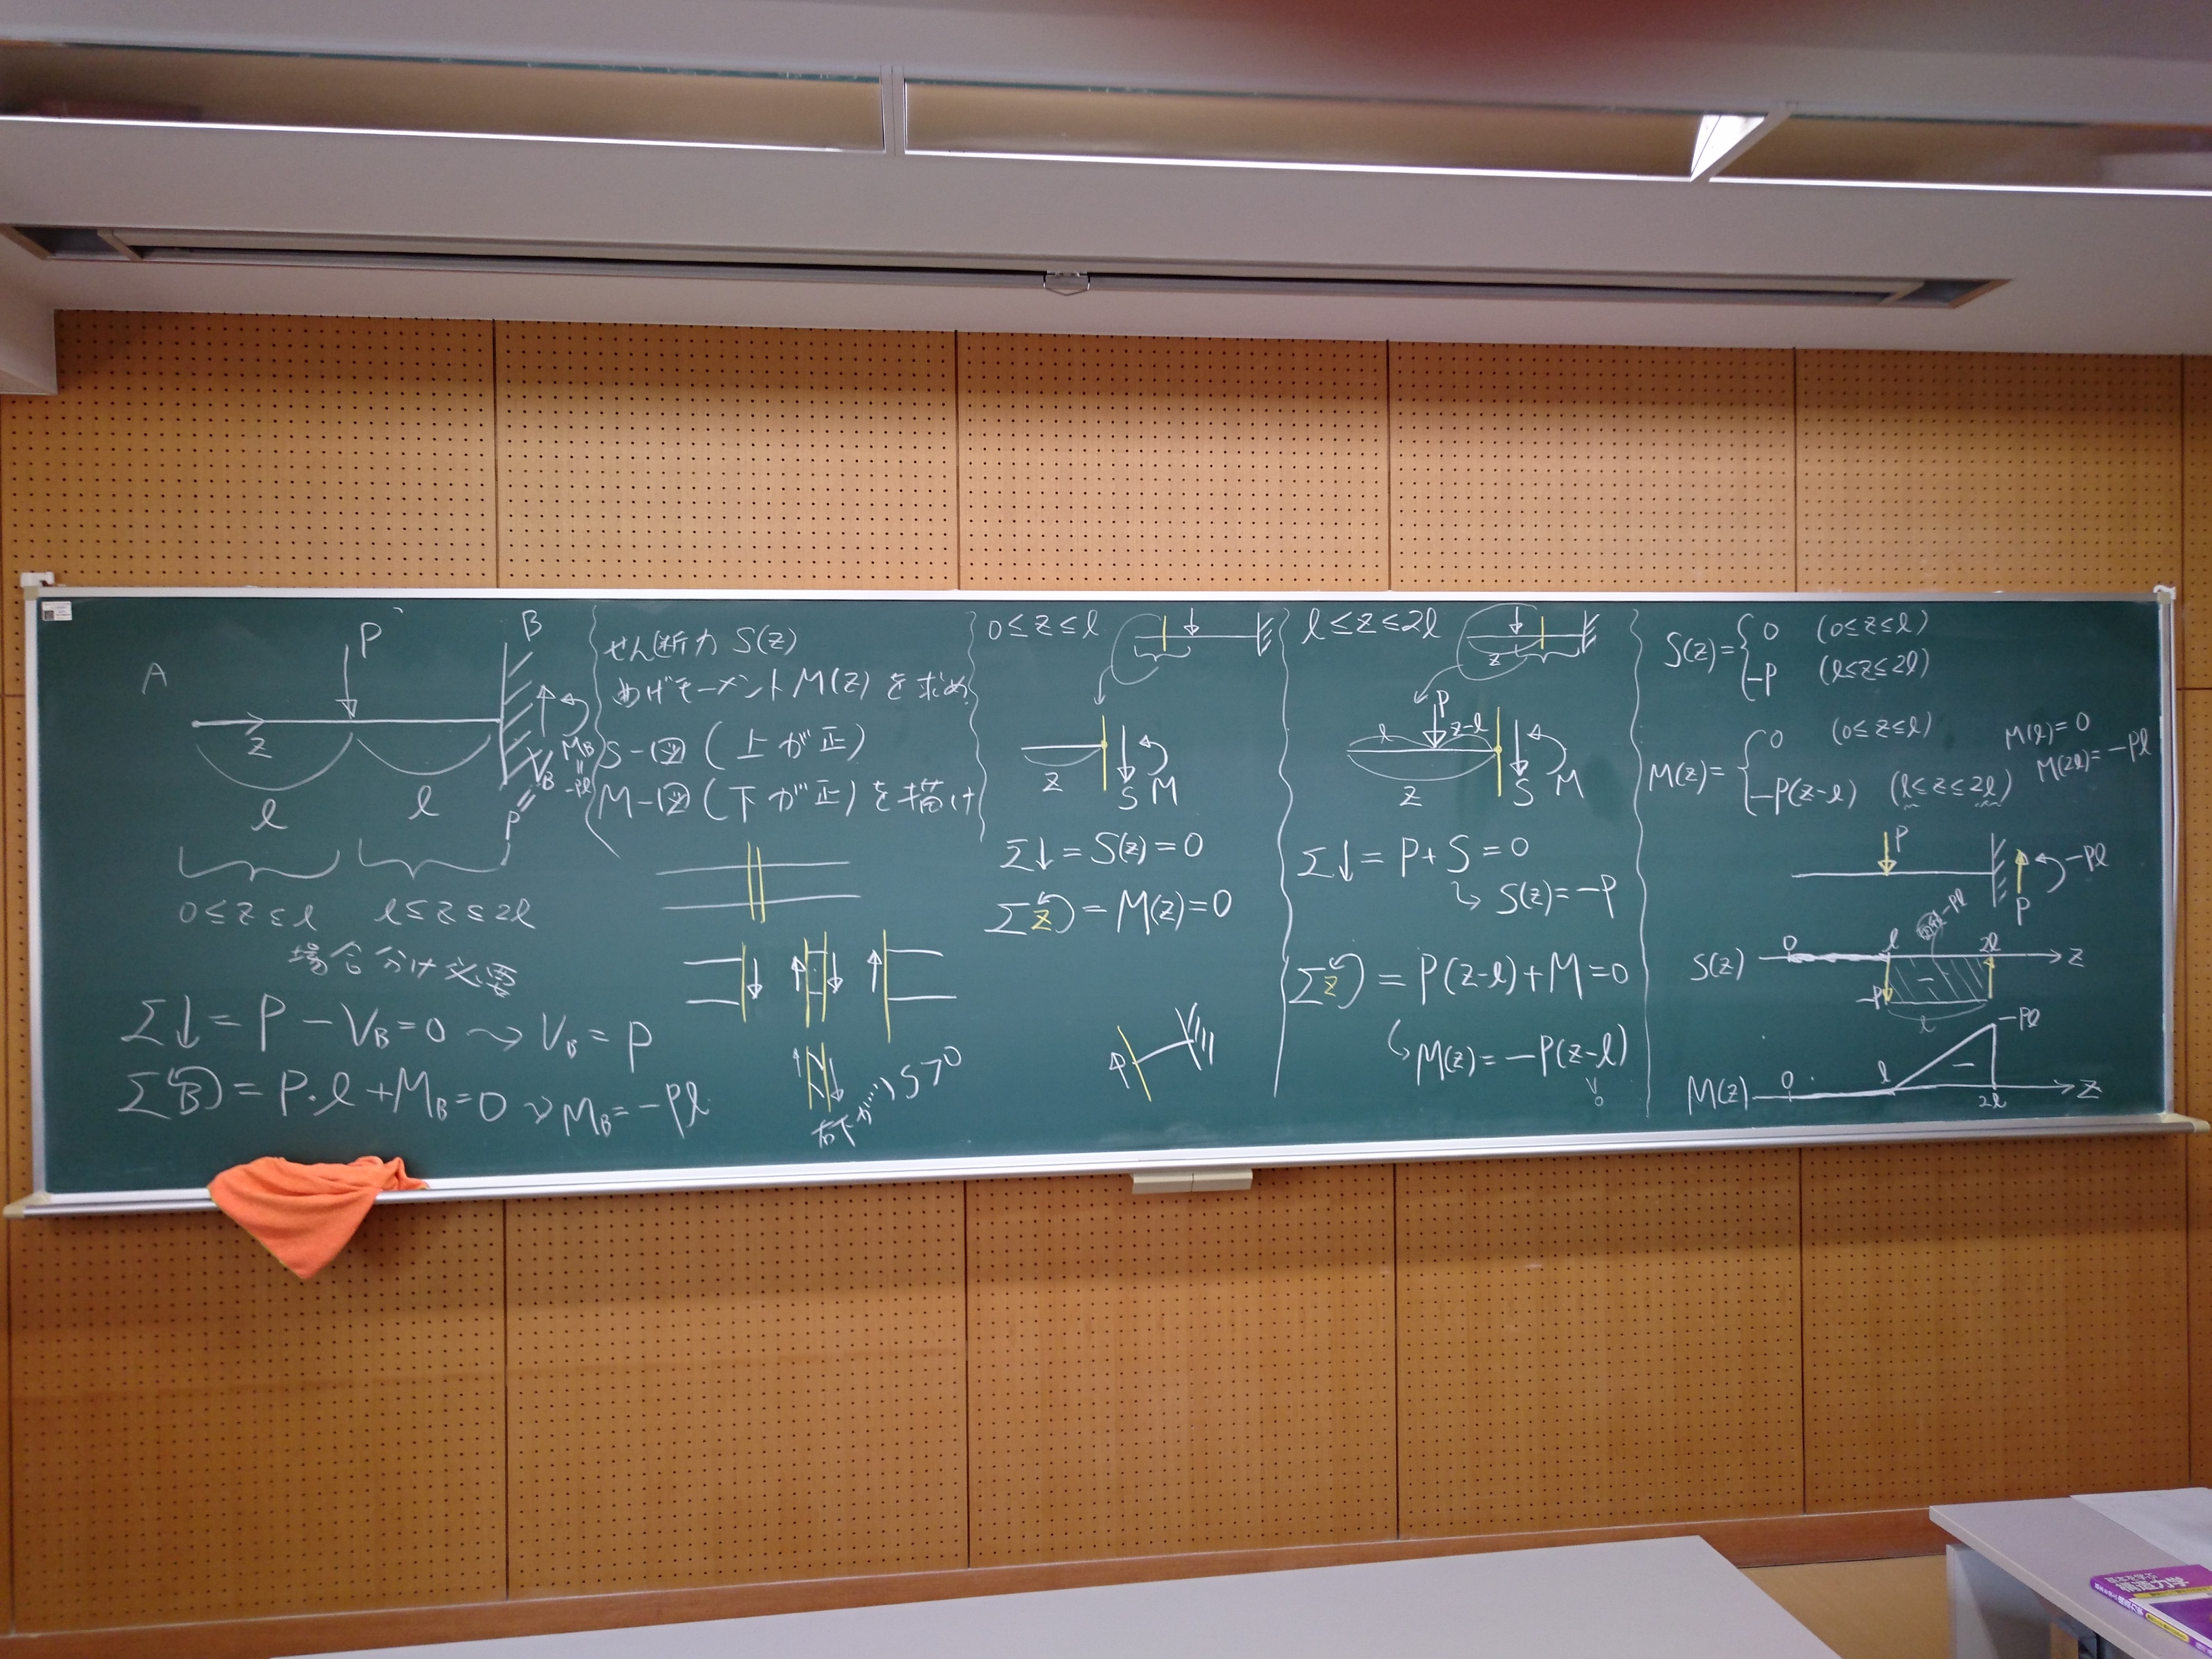 A
P
B
z
l
l
V_B
M_B
||
-Pl
=
P
0≤z≤l
l≤z≤2l
場合分け必要
Σ↓=P-V_B=0 → V_B=P
ΣB=P・l+M_B=0 → M_B=-Pl
せん断力 S(z)
曲げモーメントM(z)を求め
S-図(上が正)
M-図(下が正)を描け
右下がり S>0
0≤z≤l
z
S M
Σ↓=S(z)=0
Σz=M(z)=0
P
l≤z≤2l
z
P
l
z-l
z
S M
Σ↓=P+S=0
↳ S(z)=-P
Σz=P(z-l)+M=0
↳ M(z)=-P(z-l)
S(z)={0 (0≤z≤l)
-P (l≤z≤2l)
M(z)={0 (0≤z≤l)
-P(z-l) (l≤z≤2l)
M(l)=0
M(2l)=-Pl
P
-Pl
P
-Pl
S(z) 0 l 2l z
-P
-
l
-Pl
M(z) 0 l - 2l z
構造力学